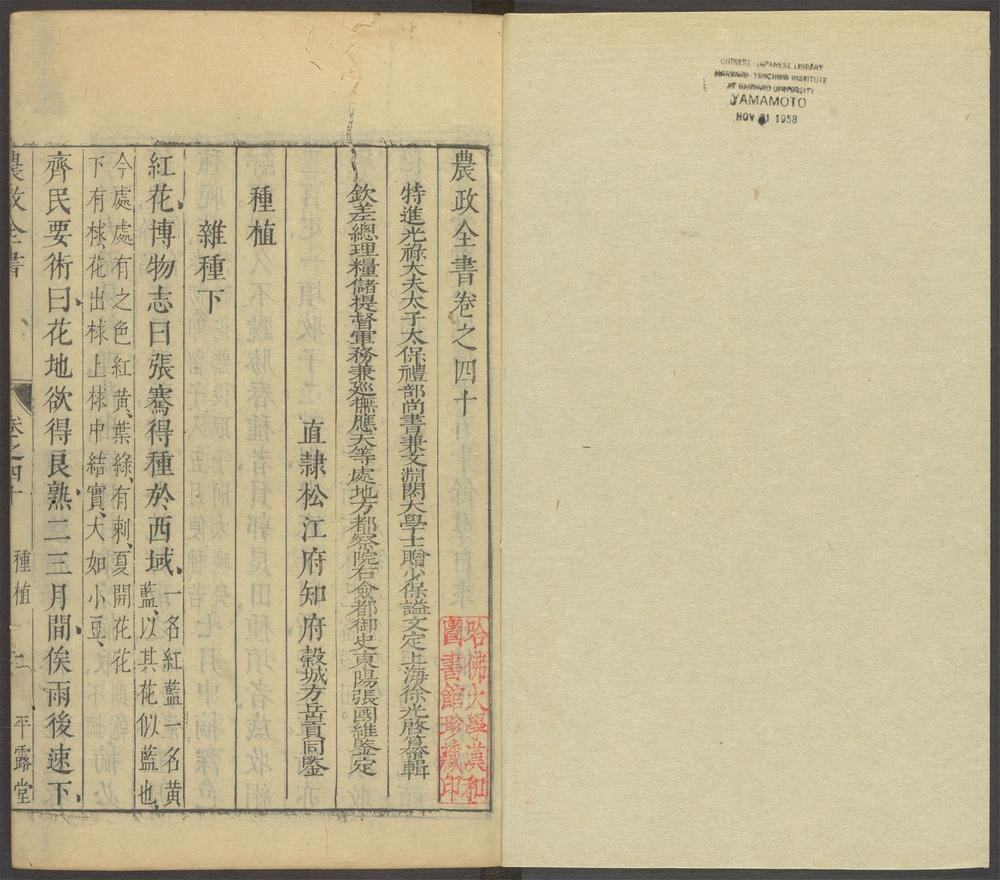 CHINESE-JAPANESE LIBRARY
HARVARD-YENCHING INSTITUTE
AT HARVARD UNIVERSITY
YAMAMOTO
NOV 21 1958
農政全書卷之四十
特進光祿大夫太子太保禮部尚書兼文淵閣大學士贈少保謚文定上海徐光啓纂輯
欽差總理糧儲提督軍務兼巡撫應天等處地方都察院右僉都御史東陽張國維鑒定
直隷松江府知府穀城方岳貢同鑒
種植
雜種下
紅花、博物志曰張騫得種於西域、一名紅藍一名黃
藍、以其花似藍也、
今處處有之色紅黃、葉綠、有刺、夏開花花
下有梂、花出梂上梂中結實、大如小豆、
齊民要術曰、花地欲得良熟、二三月間、俟雨後速下、
農政全書
卷之四十
種植
一
平露堂
哈佛大學漢和
圖書館珍藏印